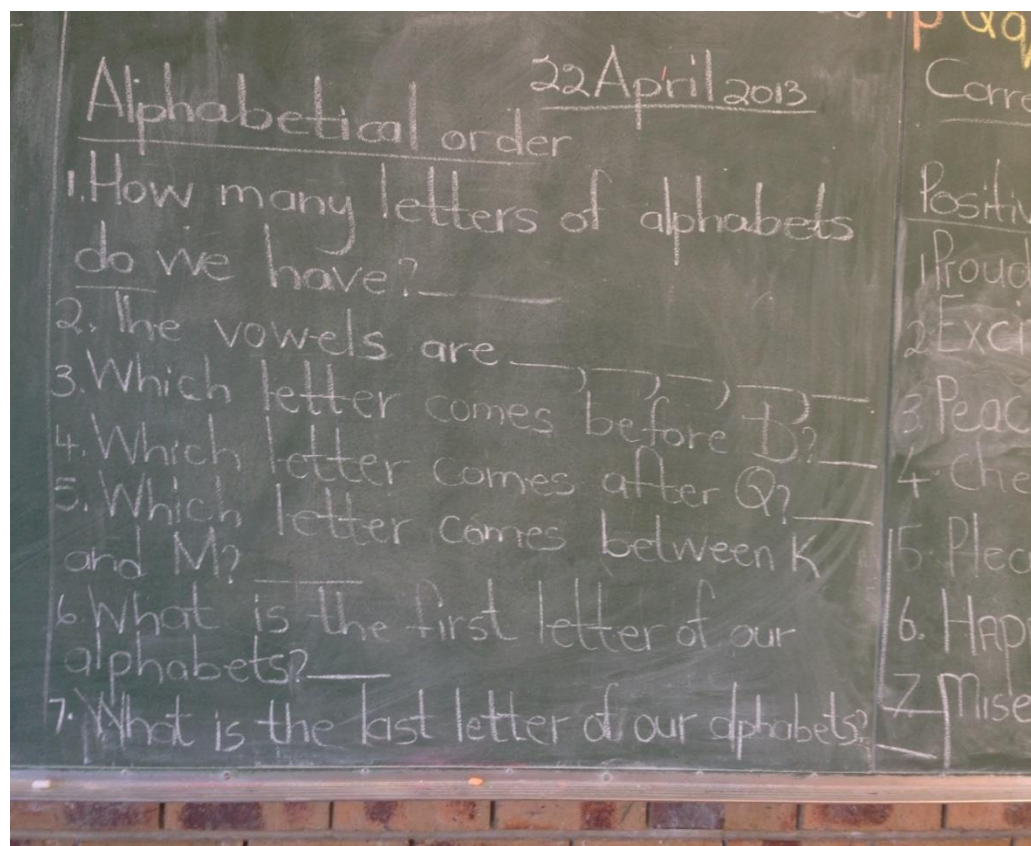 22 April 2013
Alphabetical order
1. How many letters of alphabets
do we have? ____
2. The vowels are __, __, __, __, __
3. Which letter comes before D? __
4. Which letter comes after Q? __
5. Which letter comes between K
and M? ____
6. What is the first letter of our
alphabets? ___
7. What is the last letter of our alphabets? __
p Qq
Corre
Positiv
1 Proud
2 Exci
3 Peac
4. Che
5. Plea
6. Hap
7. Mise